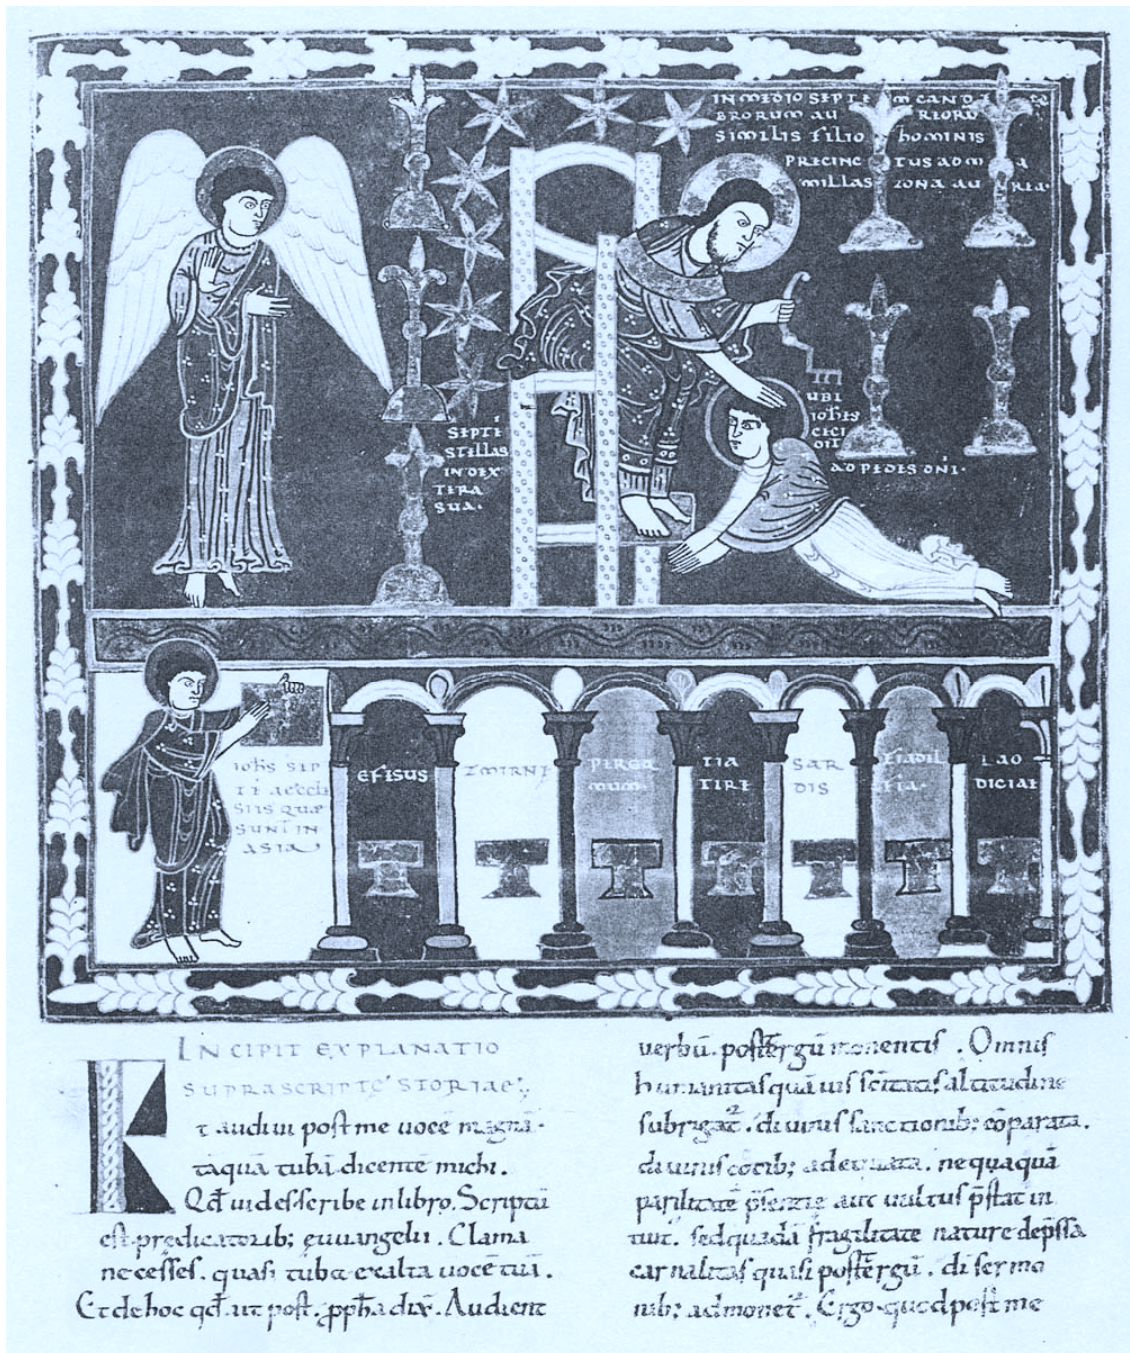 IN MEDIO SEPTEM CAND
BRORUM AU RIORU
SIMILIS FILIO HOMINIS
PRECINC TUS AD M A
MILLAS ZONA AU REA.
SEPTE
STELLAS
IN DEX
TERA
SUA.
UBI
IOHES
CECI
DIT
AD PEDES DNI.
IOHS SEP
TE AECCLE
SIIS QUÆ
SUNT IN
ASIA
EFISUS
ZMIRNE
PERGA
MUM.
TIA
TIRE
SAR
DIS
FIADIL
FIA.
LAO
DICIAE
INCIPIT EXPLANATIO
SUPRASCRIPTE STORIAE;
Et audiui post me uocē magnā.
taquā tubā dicente michi.
Qd uides scribe in libro. Scriptū
est predicatorib; euuangelii. Clama
ne cesses. quasi tuba exalta uocē tuā.
Et de hoc qd ait post. ppha dix. Audient
verbū. post tergū monentis. Omnis
humanitas quāuis scitatis altitudine
subrigat. diuinis sanctionib; cōparata.
diuinis uocib; adequata. nequaquā
parilitatē psentie aut uultus pstat in
tuit. sed quadā fragilitate nature depssa
carnalitas quasi post tergū. di sermo
nib; admonet. Ergo quod post me